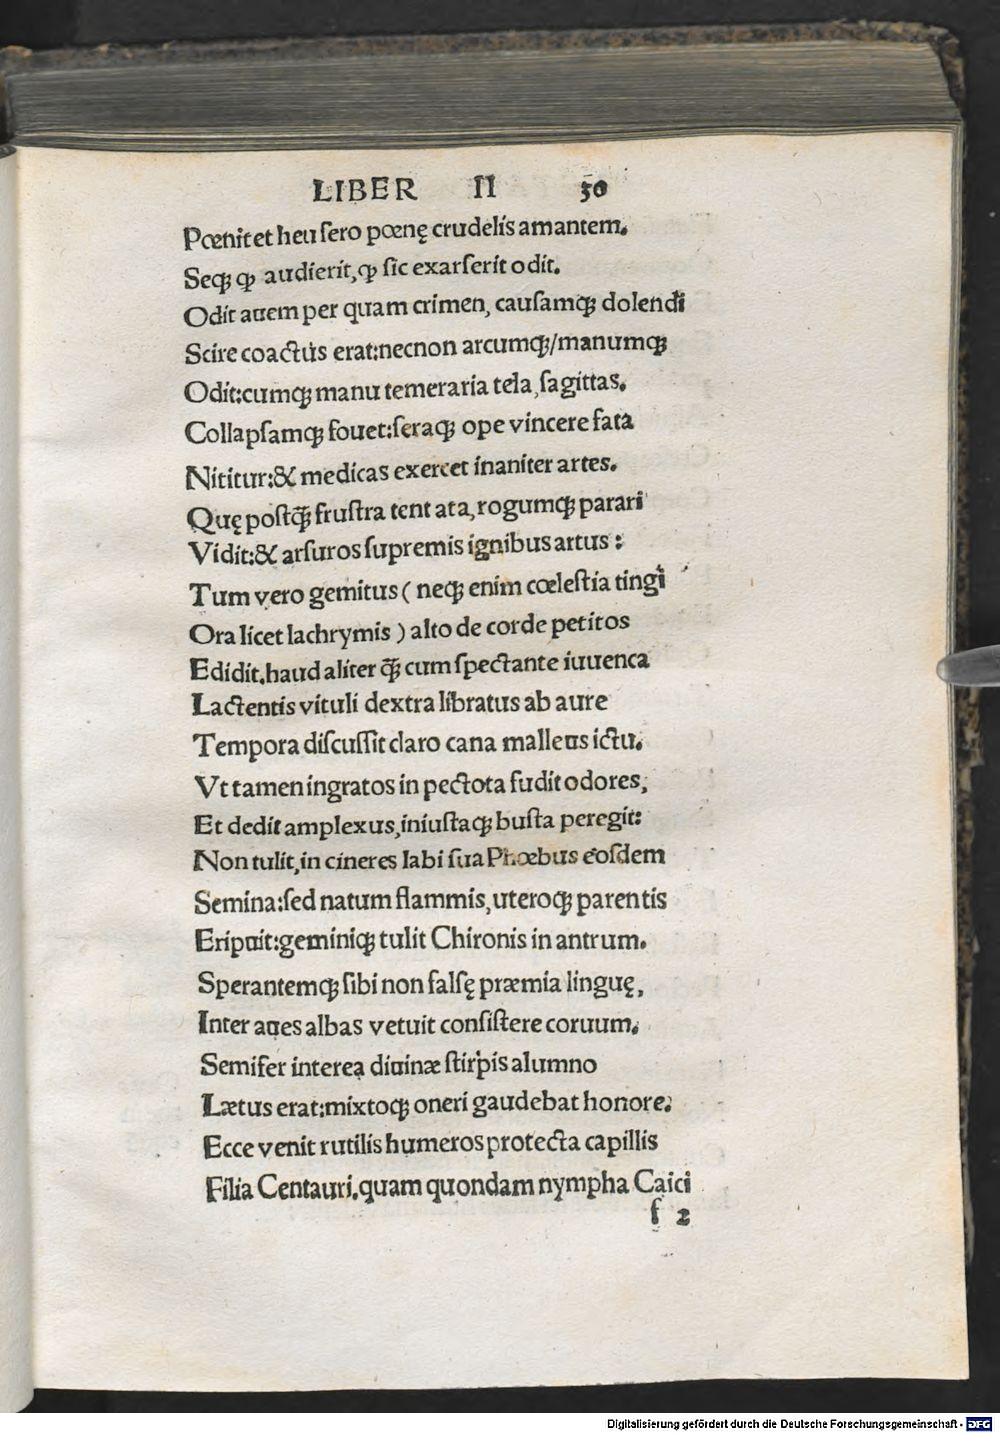 LIBER II 30
Pœnitet heu sero pœnę crudelis amantem.
Seqꝫ ꝙ audierit,ꝙ sic exarserit odit.
Odit auem per quam crimen, causamqꝫ dolendi
Scire coactus erat:necnon arcumqꝫ/manumqꝫ
Odit:cumqꝫ manu temeraria tela,sagittas.
Collapsamqꝫ fouet:seraqꝫ ope vincere fata
Nititur:& medicas exercet inaniter artes.
Quę postq̃ꝫ frustra tent ata,rogumqꝫ parari
Vidit:& arsuros supremis ignibus artus :
Tum vero gemitus ( neqꝫ enim cœlestia tingi
Ora licet lachrymis ) alto de corde petitos
Edidit.haud aliter q̃ꝫ cum spectante iuuenca
Lactentis vituli dextra libratus ab aure
Tempora discussit claro cana malleus ictu.
Vt tamen ingratos in pectota fudit odores,
Et dedit amplexus,iniustaqꝫ busta peregit:
Non tulit,in cineres labi sua Phœbus eosdem
Semina:sed natum flammis,uteroqꝫ parentis
Eripuit:geminiqꝫ tulit Chironis in antrum.
Sperantemqꝫ sibi non falsę præmia linguę,
Inter aues albas vetuit consistere coruum.
Semifer interea diuinæ stirpis alumno
Lætus erat:mixtoqꝫ oneri gaudebat honore.
Ecce venit rutilis humeros protecta capillis
Filia Centauri.quam quondam nympha Caici
f 2
Digitalisierung gefördert durch die Deutsche Forschungsgemeinschaft - DFG